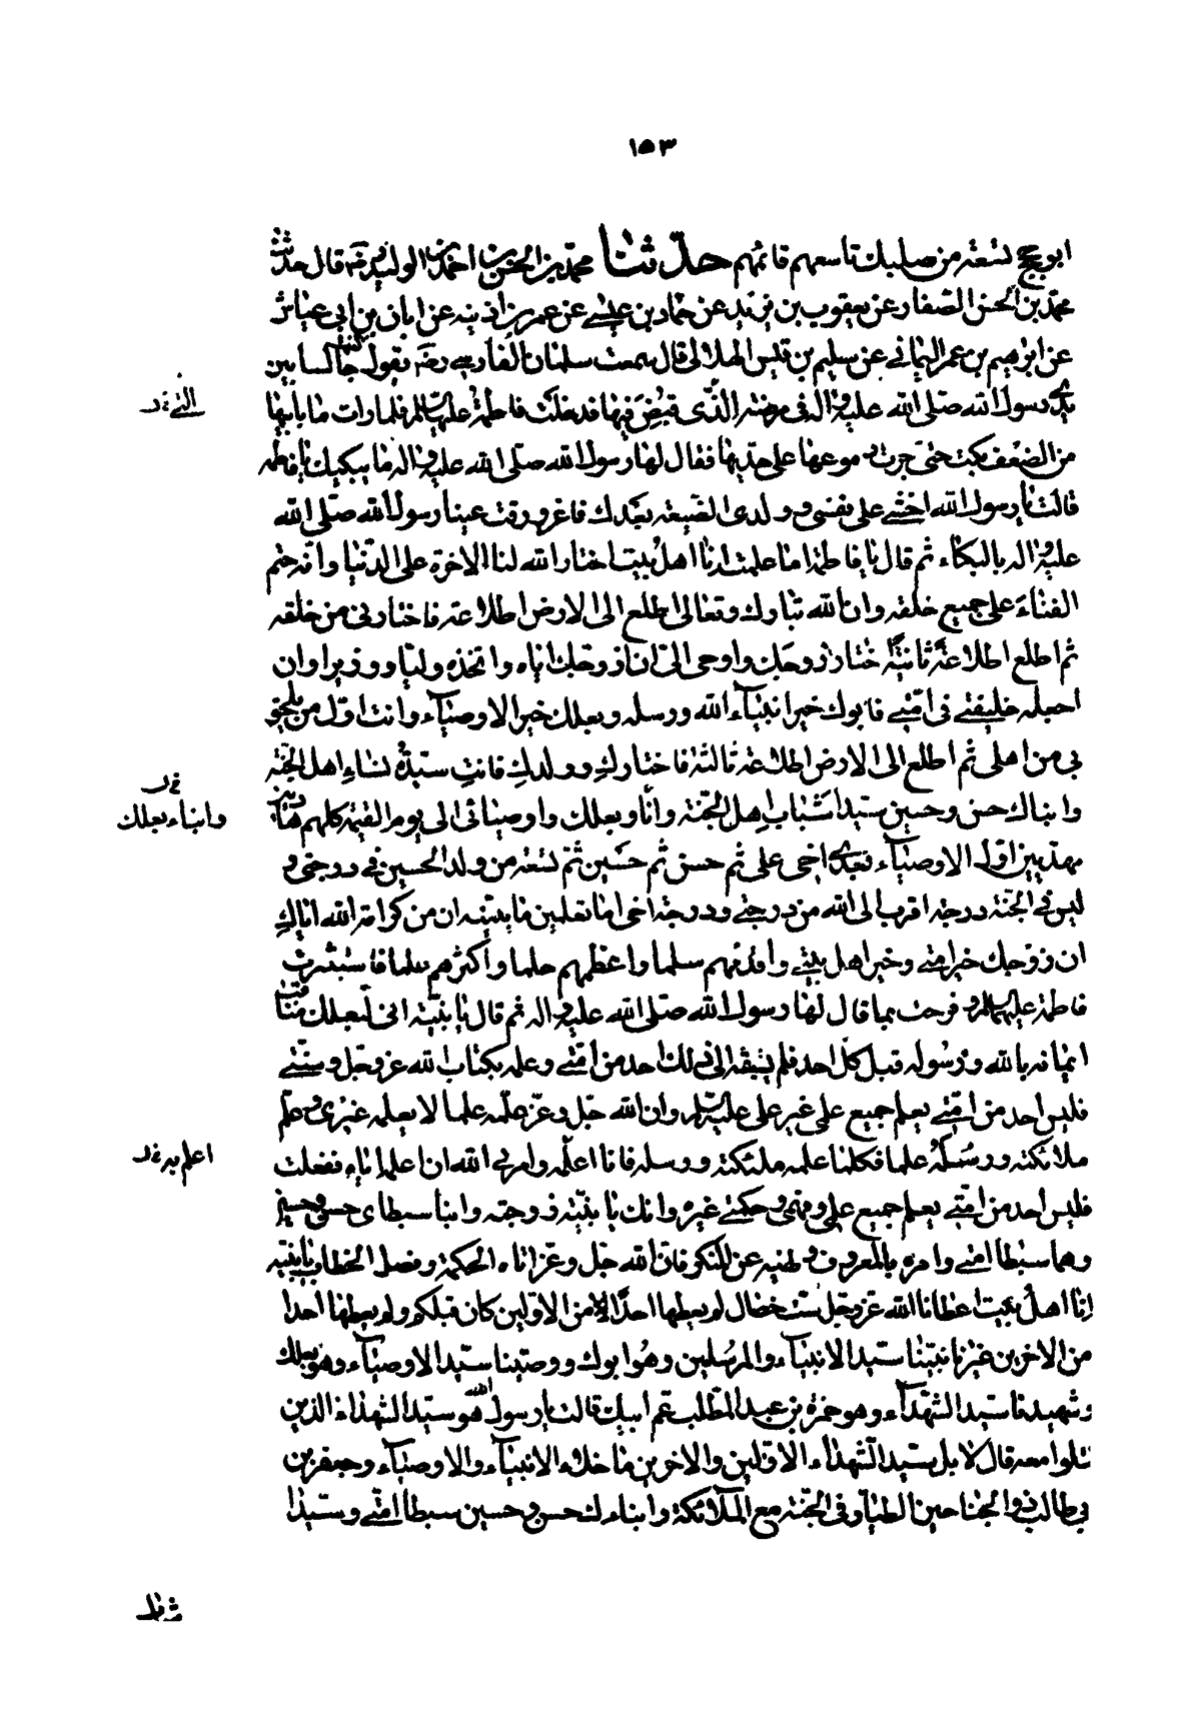 ١٥٣
ابو حجج تسعة من صلبك تاسعهم قائمهم حدّثنا محمّد بن الحسن بن احمد بن الوليد رضه قال حدثنا
محمّد بن الحسن الصّفار عن يعقوب بن يزيد عن حمّاد بن عيسى عن عمر بن اذينه عن ابان بن ابي عياش
عن ابرهيم بن عمر اليماني عن سليم بن قليس الهلالى قال سمعت سلمان الفارسي رضه يقول كنت جالسا بين
يدي رسول الله صلّى الله عليه واله في مرضته الّذي قبض فيها فدخلت فاطمة عليها السلم فلما رات ما بابيها
من الضعف بكت حتى جرت دموعها على خدّيها فقال لها رسول الله صلّى الله عليه واله ما يبكيك يا فاطمه
قالت يا رسول الله اخشى على نفسى وولدى الضّيعة بعدك فاغرورقت عينا رسول الله صلّى الله
عليه واله بالبكاء ثم قال يا فاطمة اما علمت انّا اهل بيت اختار الله لنا الاخرة على الدّنيا وانّه حتم
الفناءَ على جميع خلقه وان الله تبارك وتعالى اطلع الى الارض اطلاعة فاختارنى من خلقه
ثم اطلع اطلاعةً ثانيةً فاختار زوجك واوحى الىّ ان ازوجك اياه واتخذه وليّا ووزيرا وان
اجعله خليفتى في امّتى فابوك خير انبياء الله ورسله وبعلك خير الاوصياء وانت اوّل من يلحق
بى من اهلى ثم اطلع الى الارض اطلاعة ثالثة فاختارك وولدك فانت سيّدة نساء اهل الجنّة
وابناك حسن وحسين سيّدا شَباب اهل الجنّة وانا وبعلك واوصيائى الى يوم القيمة كلهم هادين
مهديين اوّل الاوصياء بعدى اخى على ثم حسن ثم حسَين ثمّ تسعة من ولد الحسين في درجتى و
ليس في الجنّة درجة اقرب الى الله من درجتى ودرجة اخى اما تعلمين يا بنيّه ان من كرامة الله اياكِ
ان زوّجك خير امتى وخير اهل بيتى واقدمهم سلما واعظمهم حلما وأكثرهم علما فاستبشرت
فاطمة عليها السلم وفرحت بما قال لها رسول الله صلّى الله عليه واله ثم قال يا بنيّة انّ لبعلك مناقب
ايمانه بالله ورسُوله قبل كلّ احد فلم يسبقه الى ذلك احد من امّتى وعلمه بكتاب الله عزوجل وسنّتى
فليس احد من امّتى يعلم جميع علمى غير على عليه السلم وان الله جل وعزّ علّمه علما لا يعلمه غيرى وعلّم
ملائكته ورسُلهُ علما فكلما علمه ملئكته ورسله فانا اعلمه وامرنى الله ان اعلمه اياه ففعلت
فليس احد من امّتى يعلم جميع علمى وفهمى وحكمتى غيره وانك يا بنيّة زوجته وابنا سبطاى حسن وحسين
وهما سبطا امتى وامره بالمعروف ونهيه عن المنكر فان الله جل وعزّ اتاه الحكمة وفصل الخطاب يا بنيّه
انا اهل بيت اعطانا الله عزوجل ست خصال لم يعطها احدًا من الاوّلين كان قبلكم ولم يعطها احدا
من الاخرين غيرنا نبيّنا سيّد الانبياء والمرسلين وهُو ابوك ووصيّنا سيّد الاوصياء وهو بعلك
وشهيدنا سيّد الشهداء وهو حمزة بن عبد المطّلب عم ابيك قالت يا رسول الله هو سيّد الشهداء الذين
قتلوا معه قال لا بل سيّد الشهداء الاوّلين والاخرين ما خلا الانبياء والاوصياء وجعفر بن
بى طالب ذوالجناحين الطيار في الجنّة مع الملائكة وابناء ك حسن وحسين سبطا امّتى وسيّدا
وابناء بعلك
اعلم به
شباب